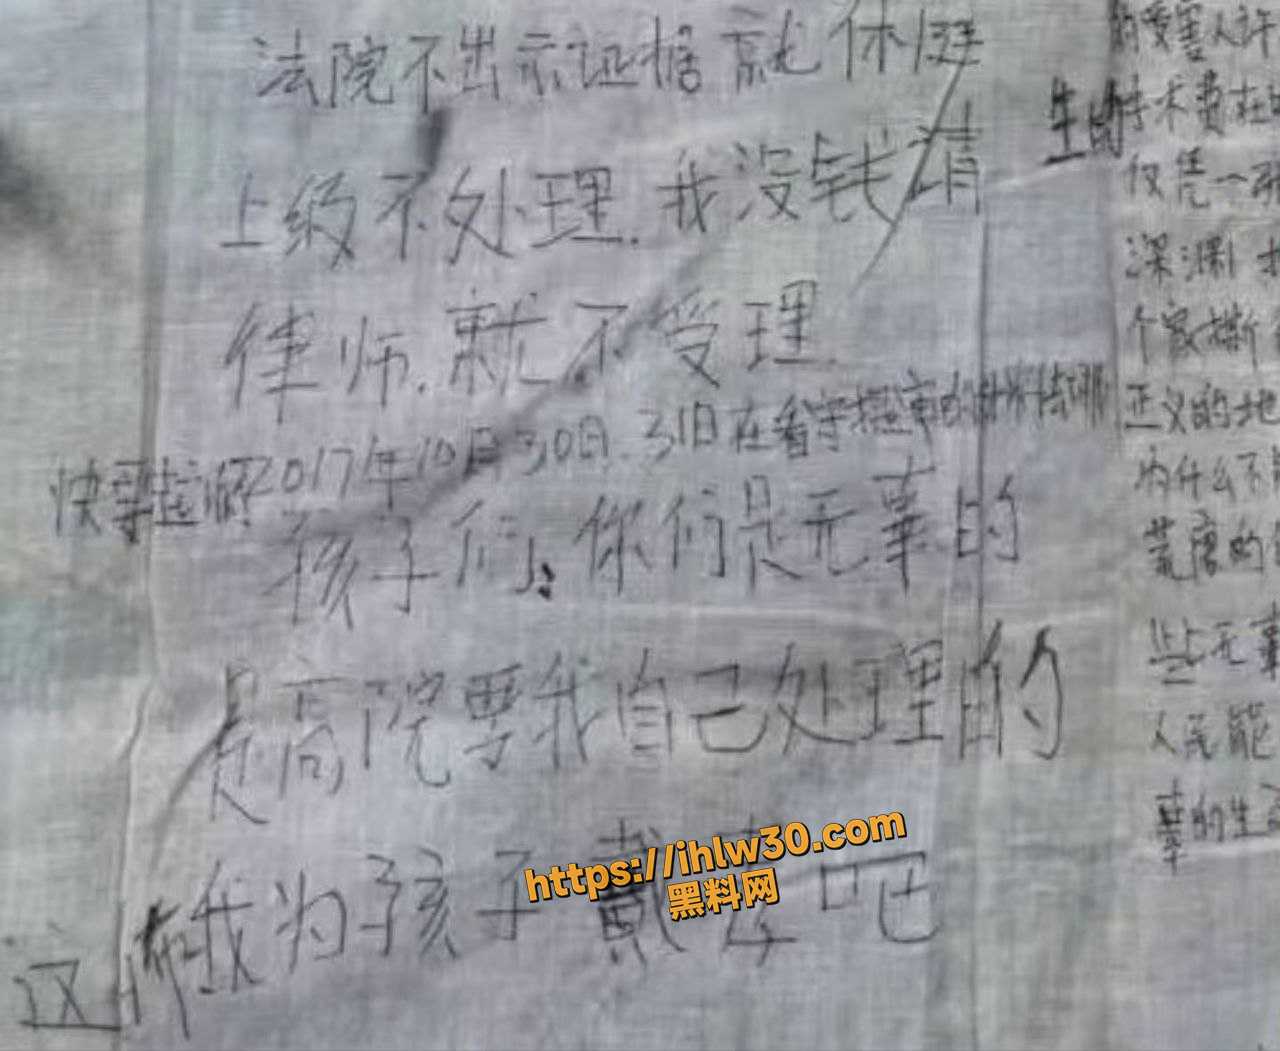 法院不出示证据就休庭
上级不处理.我没钱请
律师.就不受理.
2017年10月30日.31日在看守
孩子们:你们是无辜的
是高院要我自己处理的
我为孩子戴孝吧
这
https://ihlw30.com
黑料网
受害人
生的手术费在
仅凭一
深渊
个家
正义的地
为什么不
荒唐的
些无辜
人民能
幸的生